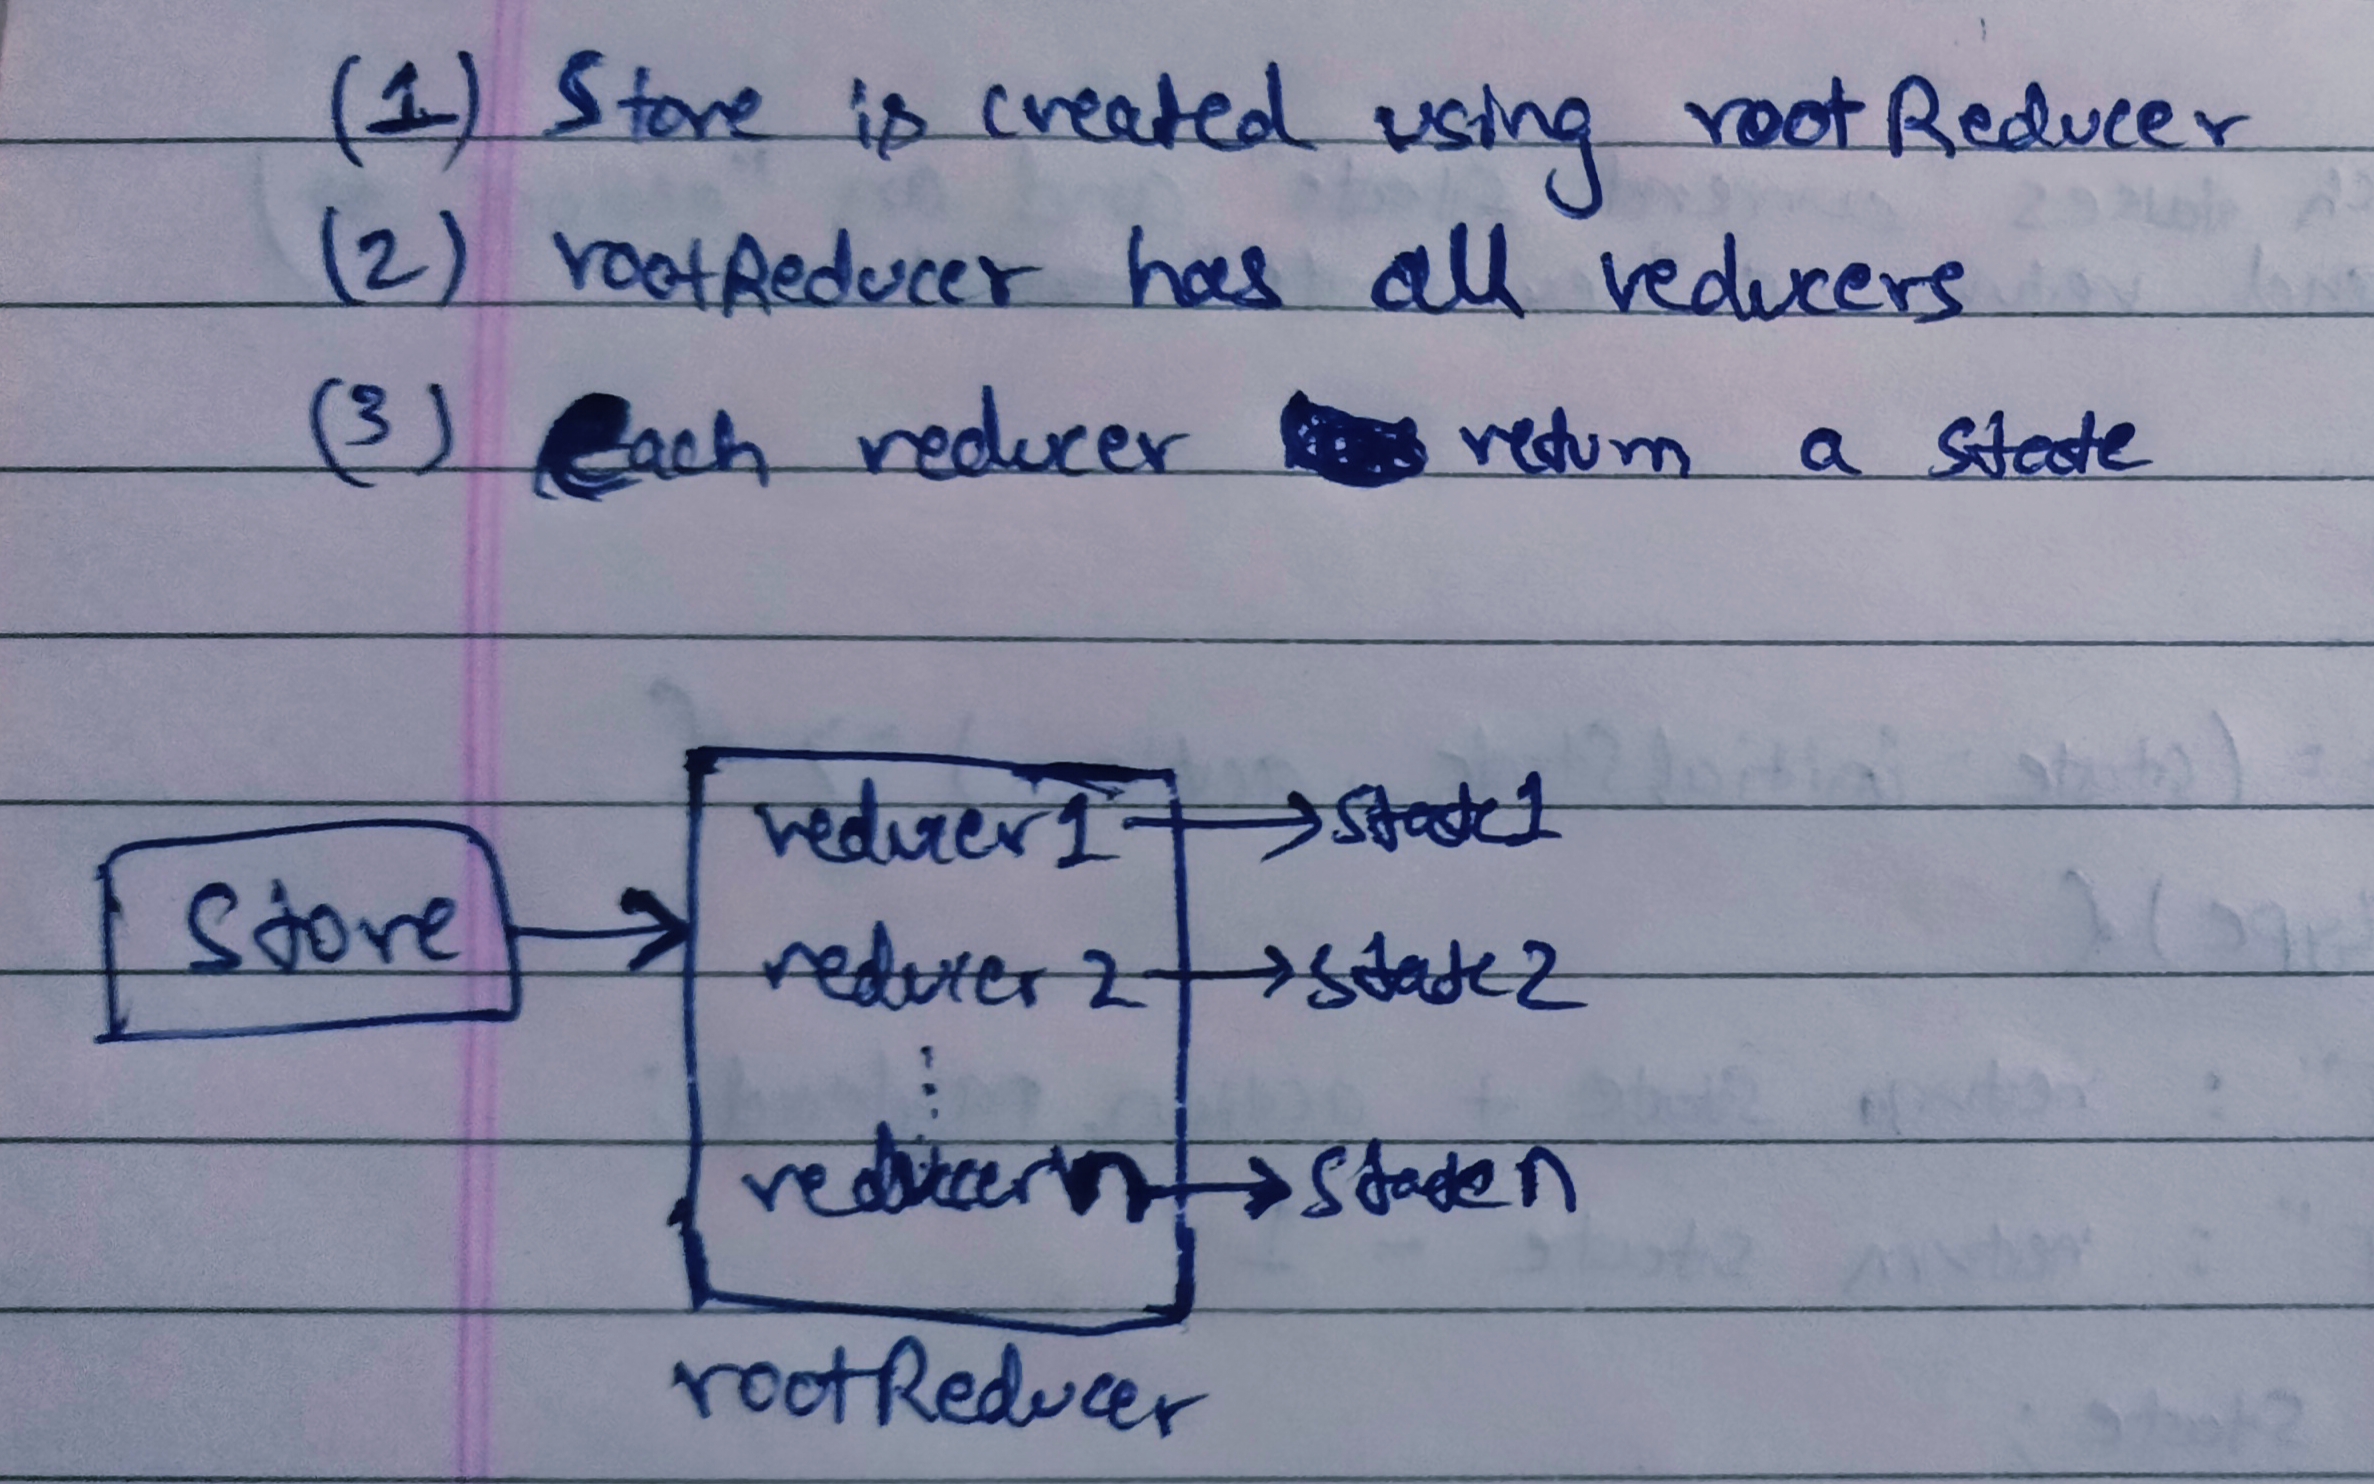 (1) Store is created using rootReducer
(2) rootReducer has all reducers
(3) Each reducer return a state
reducer 1 → state1
Store →
reducer 2 → state2
⋮
reducer n → state n
rootReducer